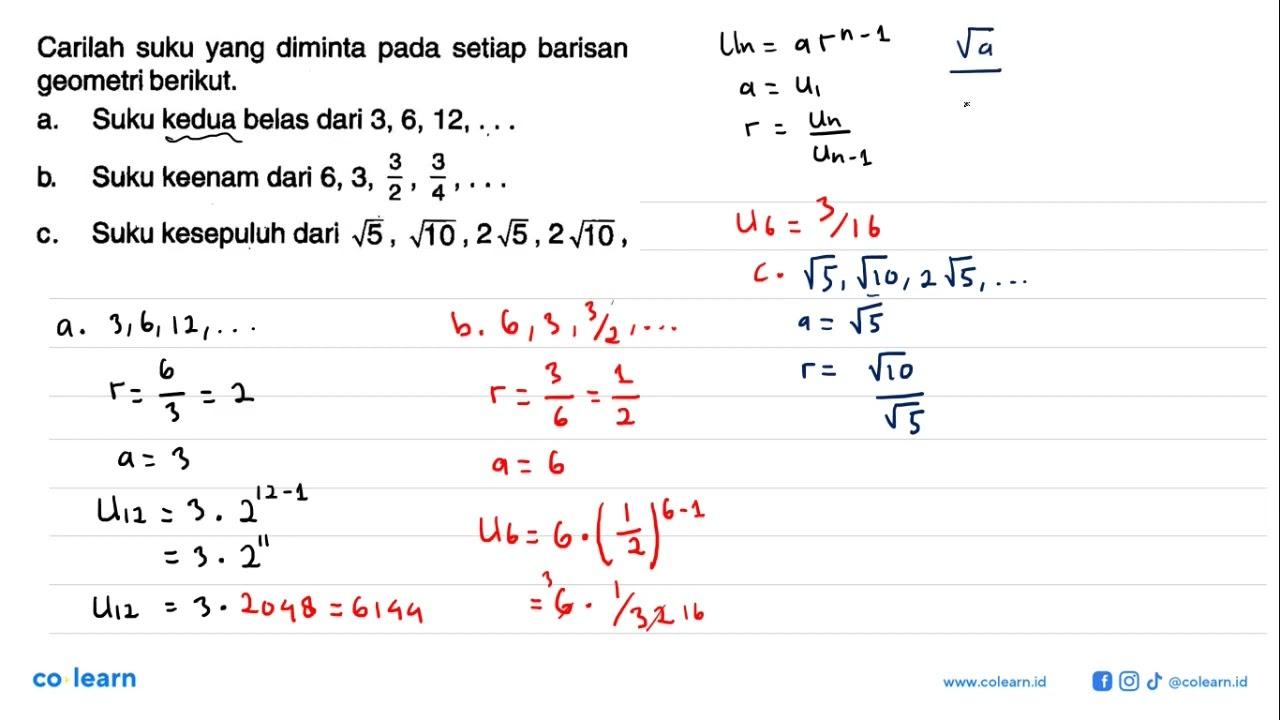 Carilah suku yang diminta pada setiap barisan
geometri berikut.
a. Suku kedua belas dari 3, 6, 12, . . .
b. Suku keenam dari 6, 3, 3/2, 3/4, . . .
c. Suku kesepuluh dari √5, √10, 2√5, 2√10,
Un = ar^n-1
a = U1
r = Un/Un-1
√a
a. 3, 6, 12, ...
r = 6/3 = 2
a = 3
U12 = 3 . 2^12-1
= 3 . 2^11
U12 = 3 . 2048 = 6144
b. 6, 3, 3/2, ...
r = 3/6 = 1/2
a = 6
U6 = 6 . (1/2)^6-1
= 6 3 . 1/32 16
U6 = 3/16
c. √5, √10, 2√5, ...
a = √5
r = √10/√5
co learn
www.colearn.id
@colearn.id